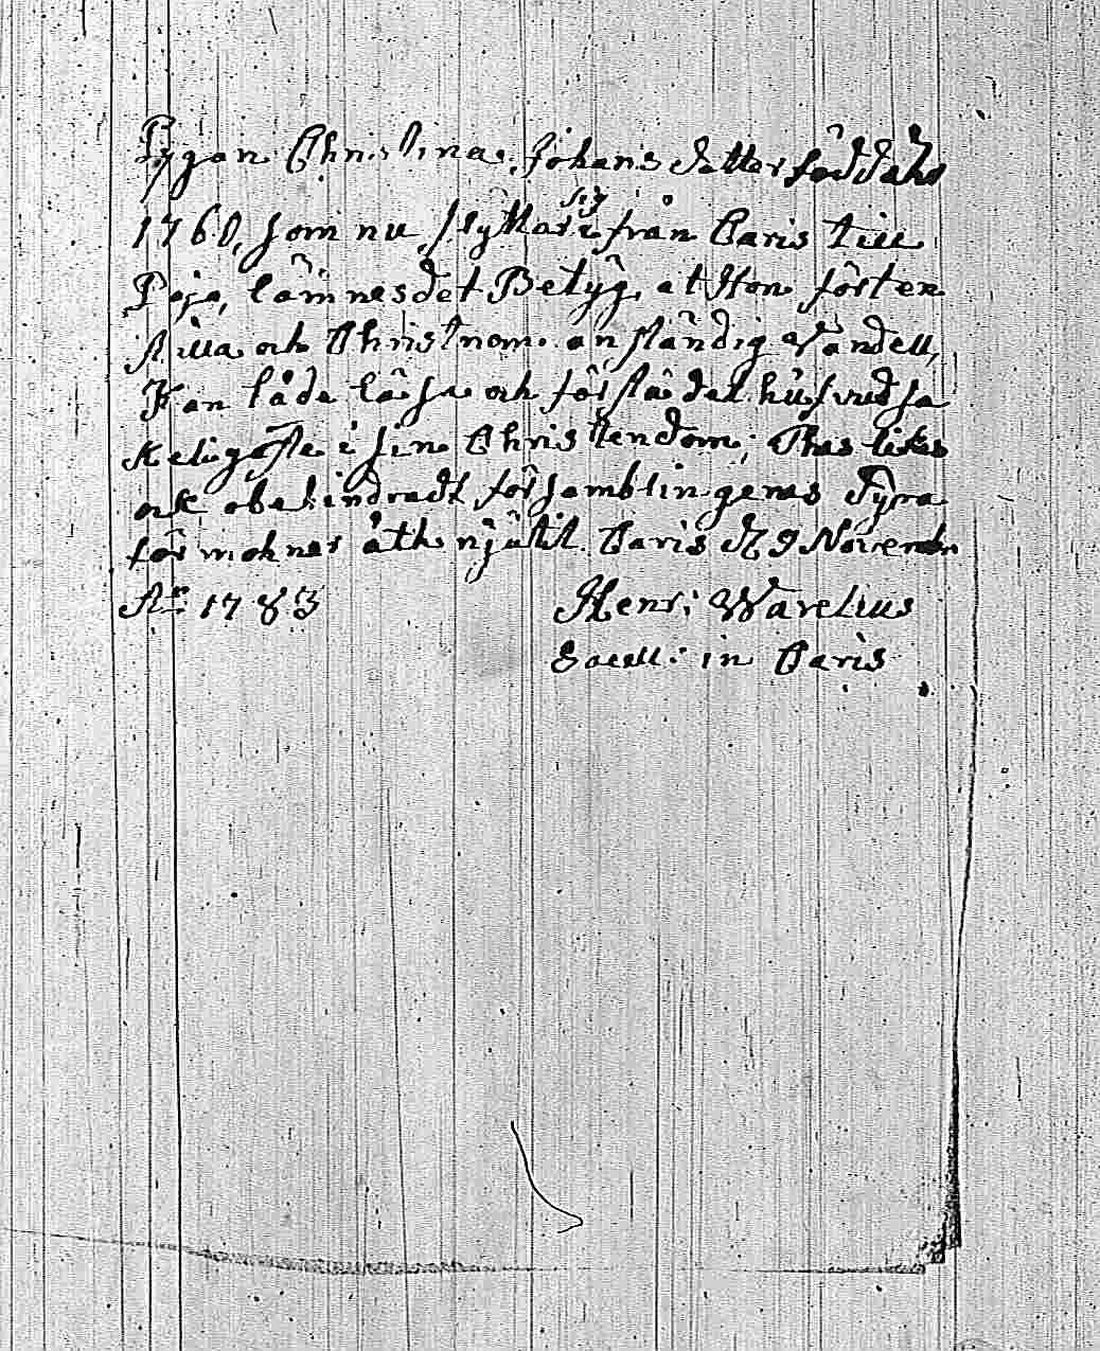 Pygan Christina Johans dotter född Åhr
1760, som nu flyttar sig från Caris till
Pojo, lämnes det Betyg, at Hon fört en
stilla och Christnom anständig Vandell,
Kan både läsa och förstå det hufvudsa
keligaste i sin Christendom; Thes likes
ock obehindradt församblingenes Dyra
förmohner åth njutit. Caris d. 9 Novembr
A:o 1783 Henri Warelius
Sacell: in Caris